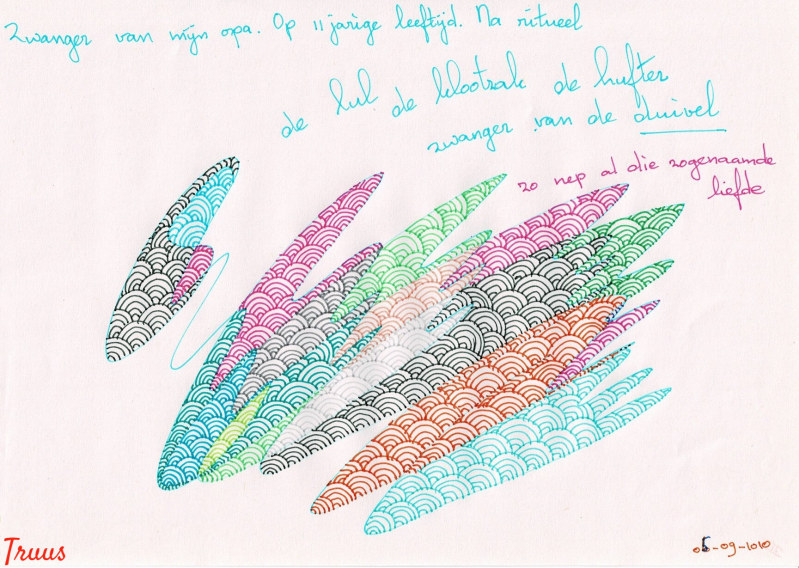 Zwanger van mijn opa. Op 11 jarige leeftijd. Na ritueel
de lul de klootzak de hufter
zwanger van de duivel
zo nep al die zogenaamde
liefde
Truus
-09-1010